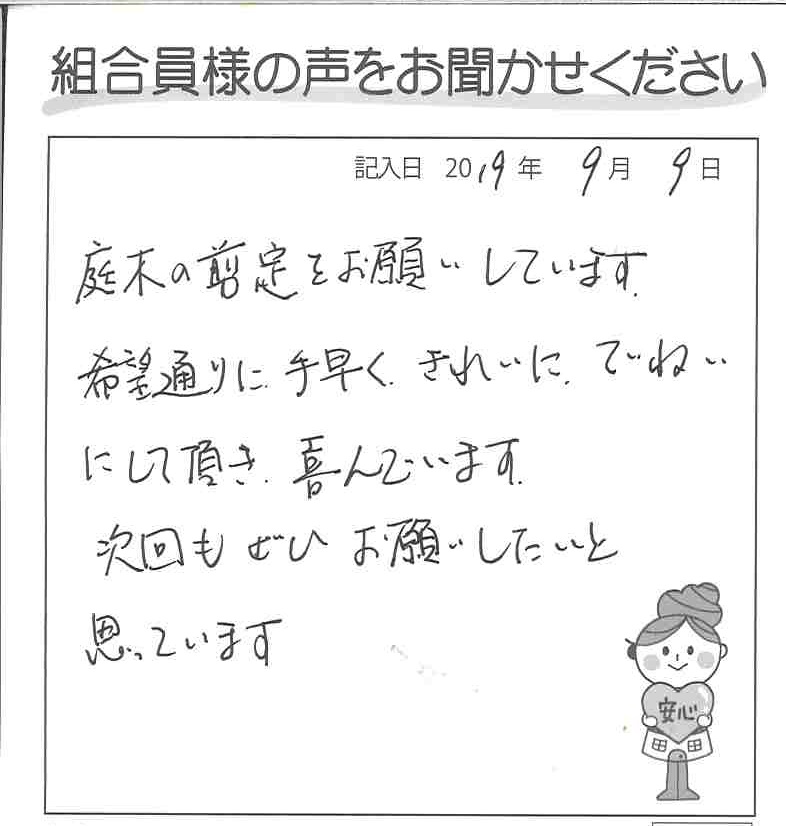 組合員様の声をお聞かせください
記入日 2019年 9月 9日
庭木の剪定をお願いしています.
希望通りに.手早く.きれいに.ていねい
にして頂き.喜んでいます.
次回もぜひお願いしたいと
思っています
安心